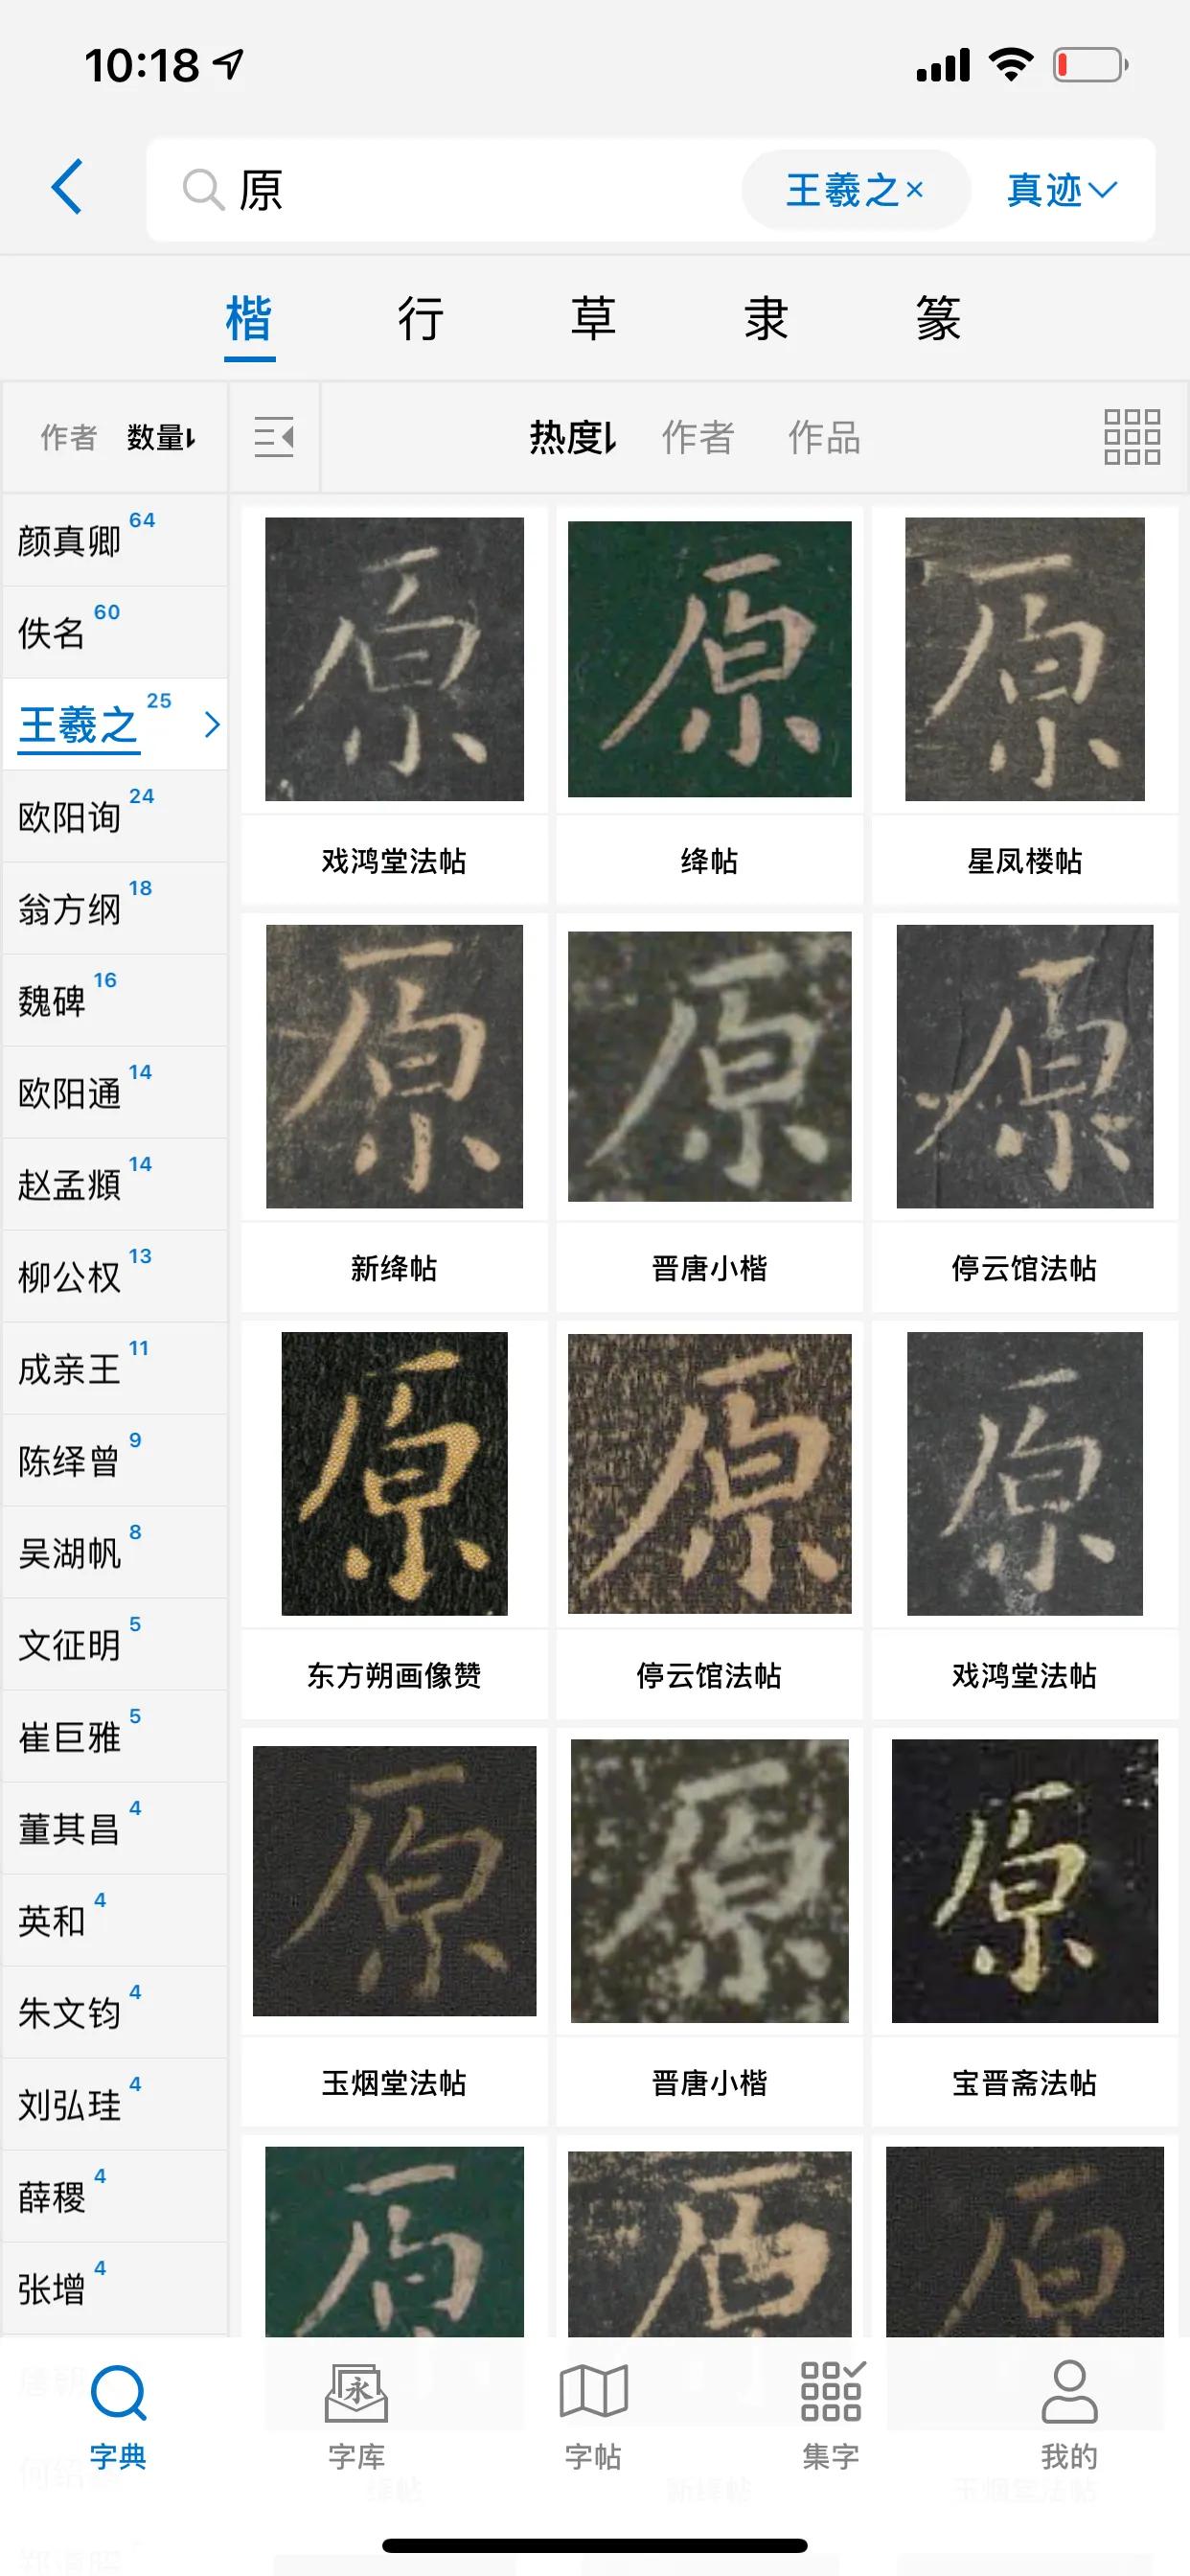 10:18
原 王羲之× 真迹
楷 行 草 隶 篆
作者 数量 热度 作者 作品
颜真卿 64
佚名 60
王羲之 25
欧阳询 24
翁方纲 18
魏碑 16
欧阳通 14
赵孟頫 14
柳公权 13
成亲王 11
陈绎曾 9
吴湖帆 8
文征明 5
崔巨雅 5
董其昌 4
英和 4
朱文钧 4
刘弘珪 4
薛稷 4
张增 4
原 原 原
戏鸿堂法帖 绛帖 星凤楼帖
原 原 原
新绛帖 晋唐小楷 停云馆法帖
原 原 原
东方朔画像赞 停云馆法帖 戏鸿堂法帖
原 原 原
玉烟堂法帖 晋唐小楷 宝晋斋法帖
原 原 原
绛帖 新绛帖 玉烟堂法帖
永
字典 字库 字帖 集字 我的